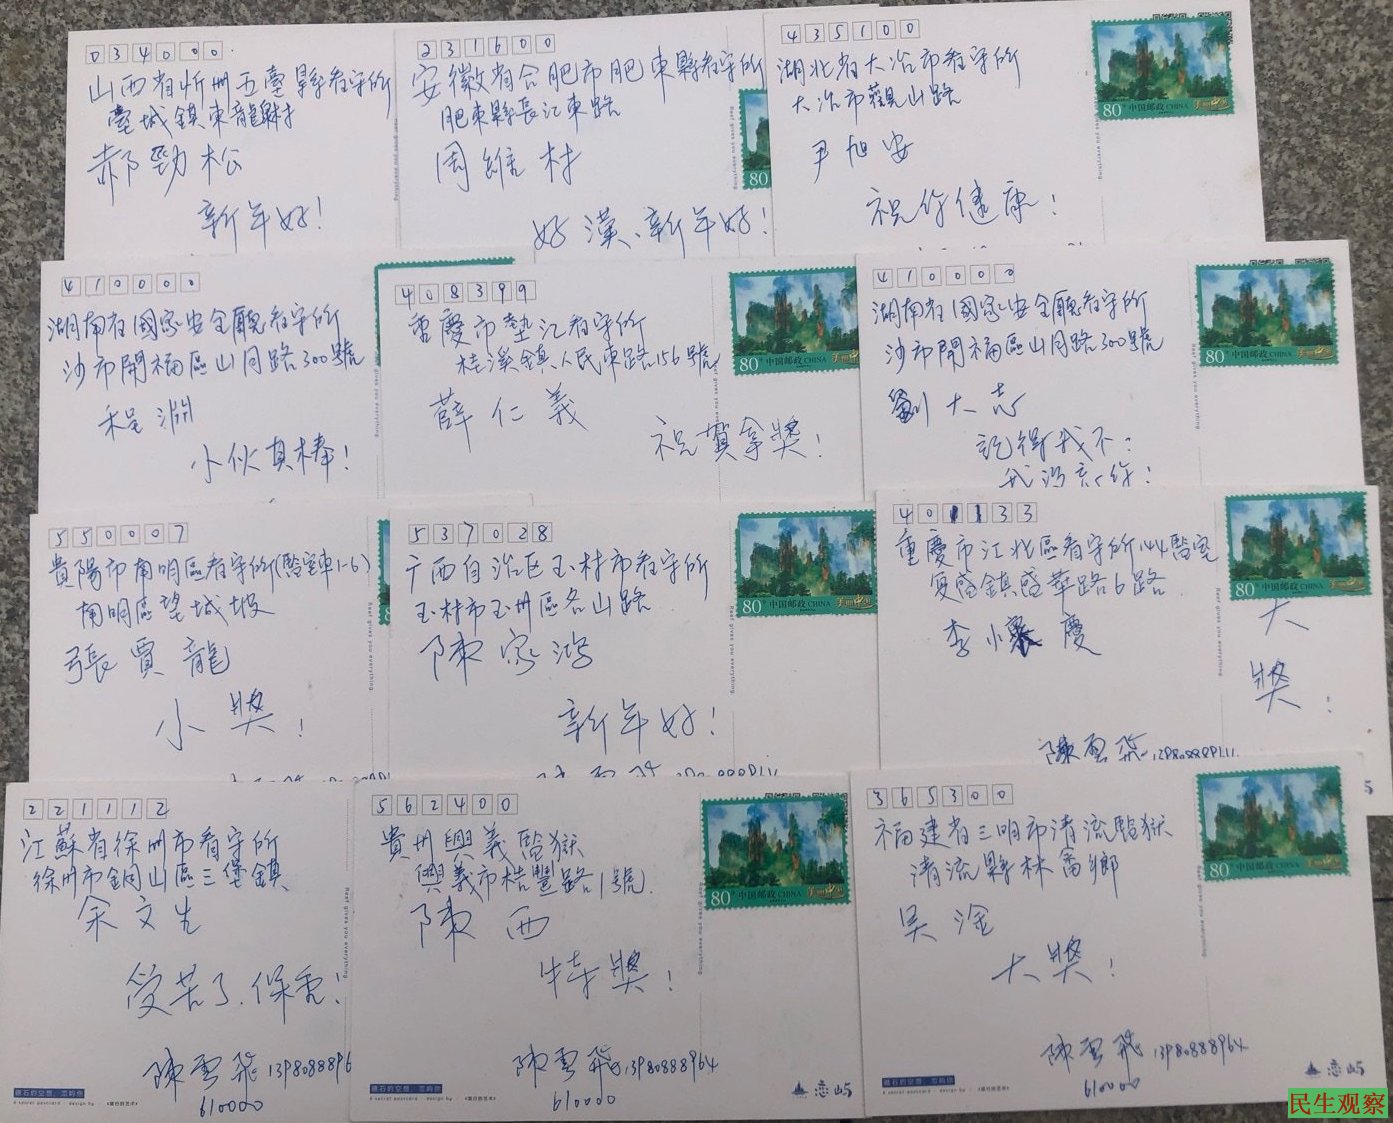 034000
山西省忻州五臺縣看守所
臺城鎮東龍財
郝勁松
新年好!
231600
安徽省合肥市肥東縣看守所
肥東縣長江東路
周維林
好漢、新年好!
80分 中国邮政
435100
湖北省大冶市看守所
大冶市觀山路
尹旭安
祝你健康!
80分 中国邮政 CHINA 美丽中国
Reef gives you everything
410000
湖南省國家安全廳看守所
沙市開福區山月路300號
程淵
小伙真棒!
408399
重慶市墊江看守所
桂溪鎮人民東路156號
薛仁義
祝賀拿獎!
80分 中国邮政 CHINA 美丽中国
410000
湖南省國家安全廳看守所
沙市開福區山月路300號
劉大志
記得我不?
我沒忘你!
80分 中国邮政 CHINA 美丽中国
550007
貴陽市南明區看守所(監室東1-6)
南明區望城坡
張賈龍
小獎!
537028
广西自治区玉林市看守所
玉林市玉州區名山路
陳家鴻
新年好!
80分 中国邮政 CHINA 美丽中国
401133
重慶市江北區看守所144監室
复盛鎮盛華路6路
李小慶
大
獎!
陳雲飛
80分 中国邮政 CHINA 美丽中国
221112
江蘇省徐州市看守所
徐州市銅山區三堡鎮
余文生
受苦了、保重!
陳雲飛 1398088896
610000
562400
貴州興義監獄
興義市桔豐路1號
陳西
特獎!
陳雲飛 13980888964
610000
80分 中国邮政 CHINA 美丽中国
恋山5
365300
福建省三明市清流監獄
清流縣林畬鄉
吴淦
大獎!
陳雲飛 13980888964
610000
80分 中国邮政 CHINA 美丽中国
恋山5
民生观察